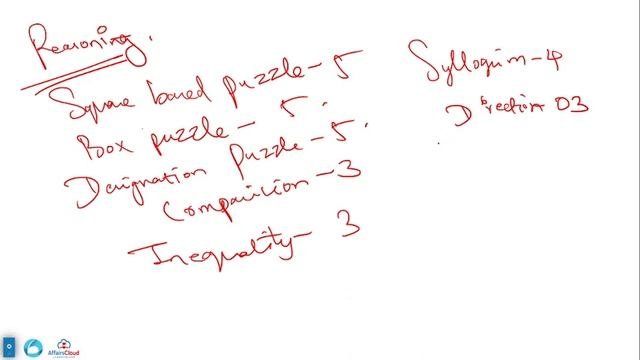 Reasoning.
Square based puzzle - 5
Box puzzle - 5.
Designation puzzle - 5.
Comparision - 3
Inequality - 3
Syllogism - 4
Direction 03
AffairsCloud